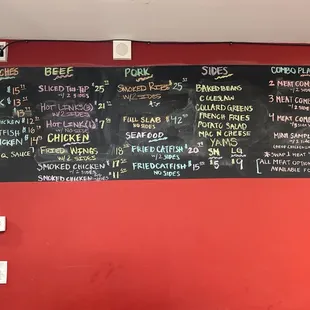 CHES
$15
$15
CHICKEN $12
TFISH $13
CHICKEN $14
SAUCE
BEEF
SLICED TRI-TIP $25
W/2 SIDES
HOT LINKS(2) $21
W/2 SIDES
HOT LINKS(1) $7
NO SIDES
CHICKEN
FRIED WINGS $18
W/2 SIDES
SMOKED CHICKEN $17
W/2 SIDES
SMOKED CHICKEN $11
NO SIDES
PORK
SMOKED RIBS $25
W/2 SIDES
FULL SLAB $42
NO SIDES
SEAFOOD
FRIED CATFISH $20
W/2 SIDES
FRIED CATFISH $15
NO SIDES
SIDES
BAKED BEANS
COLESLAW
COLLARD GREENS
FRENCH FRIES
POTATO SALAD
MAC N CHEESE
YAMS
SM LG
$5 $9
COMBO PLA
2 MEAT COM
3 MEAT COM
4 MEAT COM
MINI SAMPLE
ALL MEAT OPTION
AVAILABLE FO